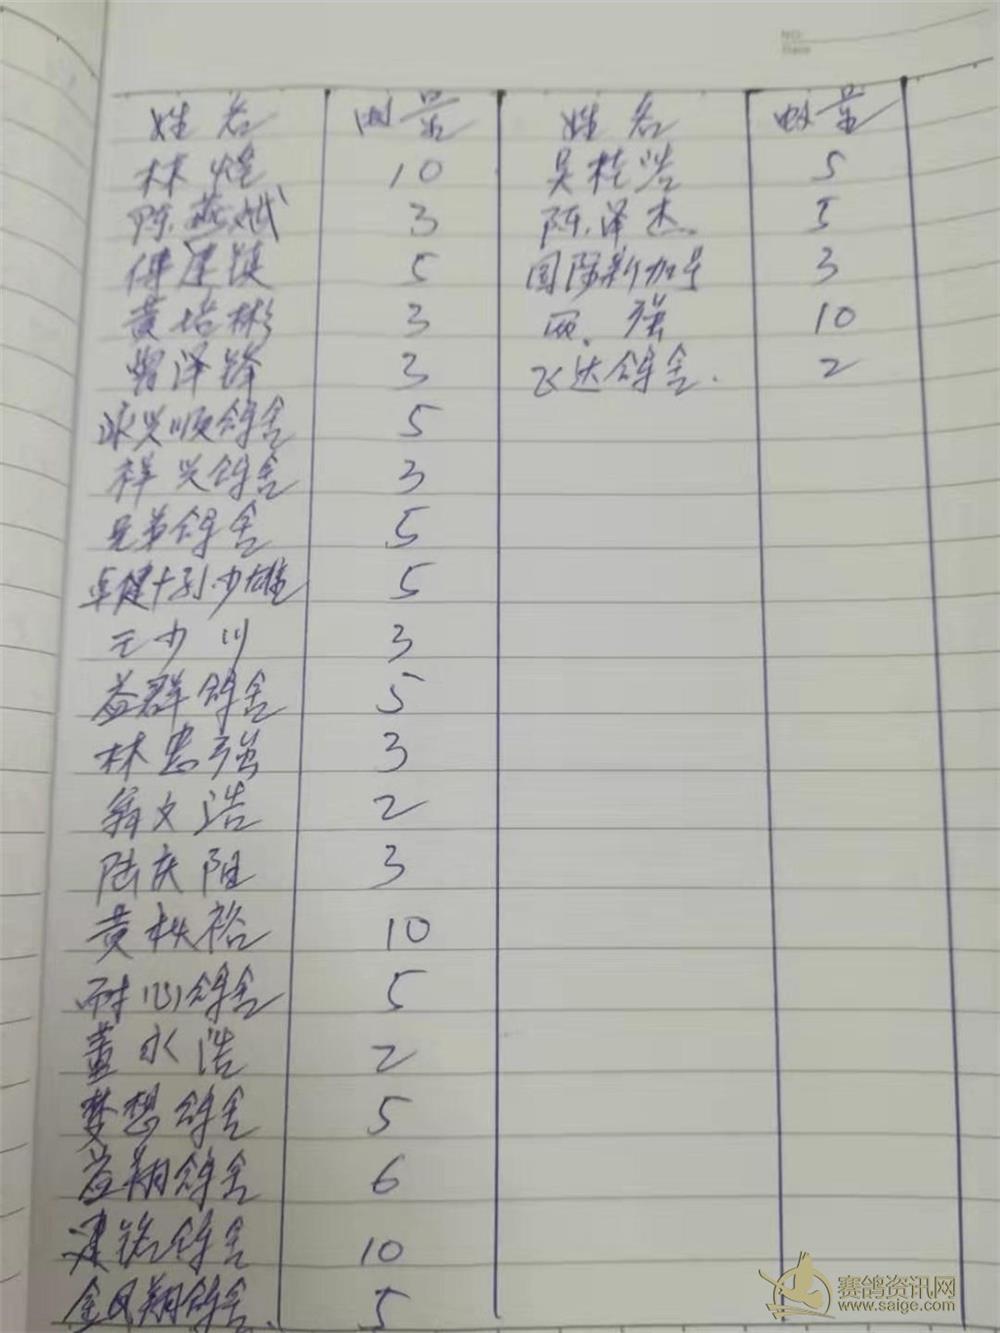 NO:
Date
姓名 数量 姓名 数量
林煌 10 吴桂浩 5
陈燕斌 3 陈泽杰 5
傅建镇 5 国际新加号 3
黄培彬 3 丽强 10
曾泽锋 3 飞达鸽舍. 2
泳兴顺鸽舍 5
祥兴鸽舍 3
兄弟鸽舍 5
卓健十孙少雄 5
王少川 3
益群鸽舍 5
林忠强 3
翁文浩 2
陆庆阳 3
黄秋裕 10
耐心鸽舍 5
董永浩 2
梦想鸽舍 5
益翔鸽舍 6
建铭鸽舍 10
金凤翔鸽舍. 5
赛鸽资讯网
www.saige.com